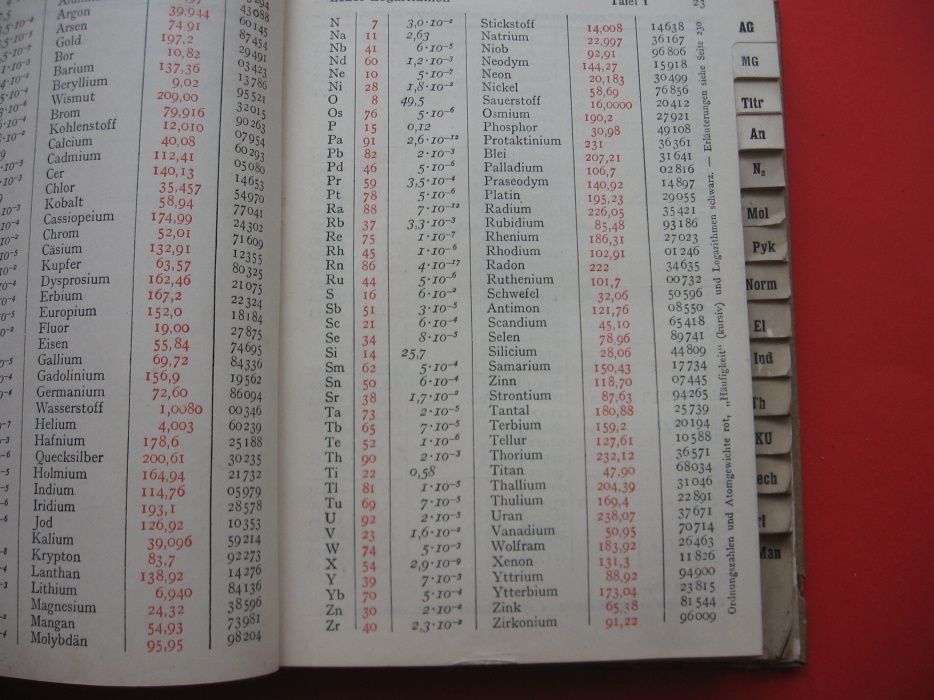 Argon 39,944 43088
Arsen 74,91 60145
Gold 197,2 87454
Bor 10,82 29491
Barium 137,36 03423
Beryllium 9,02 13786
Wismut 209,00 95521
Brom 79,916 32015
Kohlenstoff 12,010 90263
Calcium 40,08 07954
Cadmium 112,41 60293
Cer 140,13 05080
Chlor 35,457 14653
Kobalt 58,94 54970
Cassiopeium 174,99 77041
Chrom 52,01 24302
Cäsium 132,91 71609
Kupfer 63,57 12355
Dysprosium 162,46 80325
Erbium 167,2 21075
Europium 152,0 22324
Fluor 19,00 18184
Eisen 55,84 27875
Gallium 69,72 74695
Gadolinium 156,9 84336
Germanium 72,60 19562
Wasserstoff 1,0080 86094
Helium 4,003 00346
Hafnium 178,6 60239
Quecksilber 200,61 25188
Holmium 164,94 30235
Indium 114,76 21732
Iridium 193,1 05979
Jod 126,92 28578
Kalium 39,096 10353
Krypton 83,7 59214
Lanthan 138,92 92273
Lithium 6,940 14276
Magnesium 24,32 84136
Mangan 54,93 38596
Molybdän 95,95 73981
98204
Tafel 1 23
N 7 3,0·10⁻² Stickstoff 14,008 14638
Na 11 2,63 Natrium 22,997 36167
Nb 41 6·10⁻⁵ Niob 92,91 96806
Nd 60 1,2·10⁻³ Neodym 144,27 15918
Ne 10 5·10⁻⁷ Neon 20,183 30499
Ni 28 1,8·10⁻² Nickel 58,69 76856
O 8 49,5 Sauerstoff 16,0000 20412
Os 76 5·10⁻⁶ Osmium 190,2 27921
P 15 0,12 Phosphor 30,98 49108
Pa 91 2,6·10⁻¹² Protaktinium 231 36361
Pb 82 2·10⁻³ Blei 207,21 31641
Pd 46 5·10⁻⁶ Palladium 106,7 02816
Pr 59 3,5·10⁻⁴ Praseodym 140,92 14897
Pt 78 5·10⁻⁶ Platin 195,23 29055
Ra 88 7·10⁻¹² Radium 226,05 35421
Rb 37 3,3·10⁻³ Rubidium 85,48 93186
Re 75 1·10⁻⁷ Rhenium 186,31 27023
Rh 45 1·10⁻⁶ Rhodium 102,91 01246
Rn 86 4·10⁻¹⁷ Radon 222 34635
Ru 44 5·10⁻⁶ Ruthenium 101,7 00732
S 16 6·10⁻² Schwefel 32,06 50596
Sb 51 3·10⁻⁵ Antimon 121,76 08550
Sc 21 6·10⁻⁴ Scandium 45,10 65418
Se 34 8·10⁻⁵ Selen 78,96 89741
Si 14 25,7 Silicium 28,06 44809
Sm 62 5·10⁻⁴ Samarium 150,43 17734
Sn 50 6·10⁻⁴ Zinn 118,70 07445
Sr 38 1,7·10⁻² Strontium 87,63 94265
Ta 73 2·10⁻⁵ Tantal 180,88 25739
Tb 65 7·10⁻⁵ Terbium 159,2 20194
Te 52 1·10⁻⁶ Tellur 127,61 10588
Th 90 2·10⁻³ Thorium 232,12 36571
Ti 22 0,58 Titan 47,90 68034
Tl 81 1·10⁻⁵ Thallium 204,39 31046
Tu 69 7·10⁻⁵ Thulium 169,4 22891
U 92 2·10⁻⁵ Uran 238,07 37671
V 23 1,6·10⁻² Vanadium 50,95 70714
W 74 5·10⁻³ Wolfram 183,92 26463
X 54 2,9·10⁻⁹ Xenon 131,3 11826
Y 39 7·10⁻³ Yttrium 88,92 94900
Yb 70 5·10⁻⁴ Ytterbium 173,04 23815
Zn 30 2·10⁻² Zink 65,38 81544
Zr 40 2,3·10⁻² Zirkonium 91,22 96009
Ordnungszahlen und Atomgewichte rot, „Häufigkeit“ (kursiv) und Logarithmen schwarz. — Erläuterungen siehe Seite 230.
AG
MG
Titr
An
N₂
Mol
Pyk
Norm
El
Ind
Th
KU
ech
Man